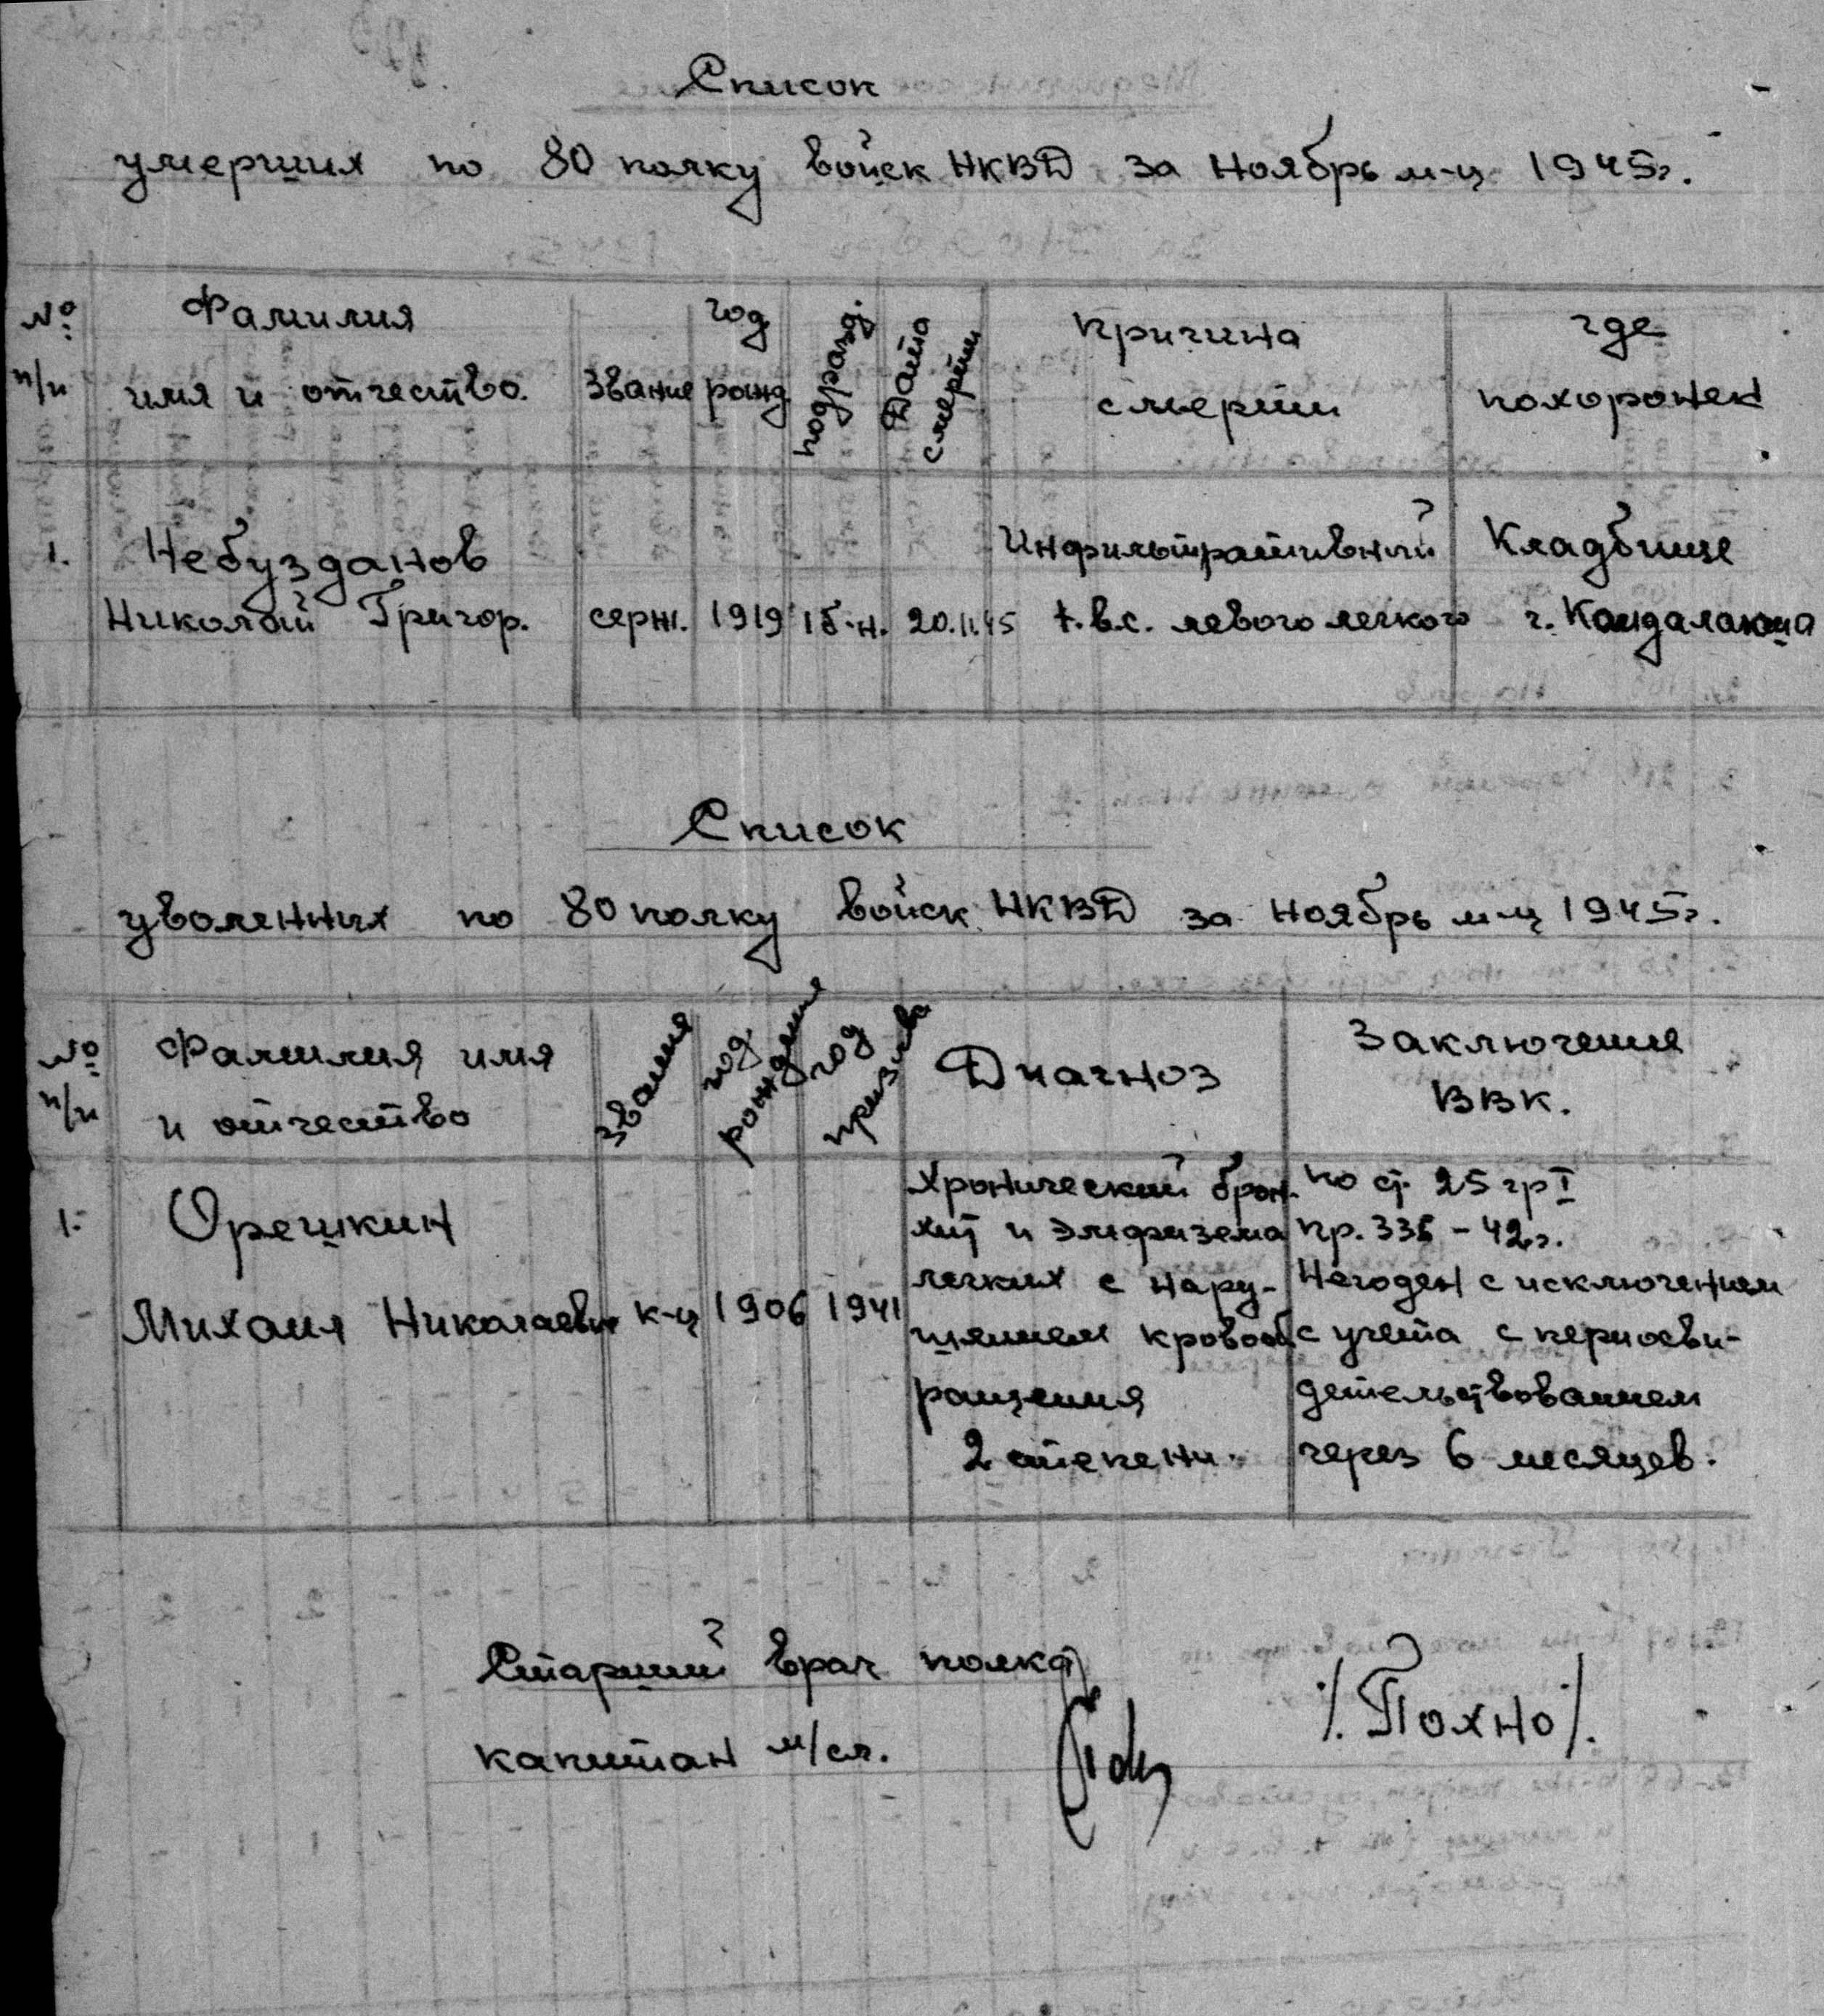 Список
умерших по 80 полку войск НКВД за Ноябрь м-ц 1945г.
№ п/п
Фамилия имя и отчество
Звание
год рожд
подразд.
Дата смерти
Причина смерти
где похоронен
1. Небузданов Инфильтративный Кладбище
Николай Григор. серж. 1919 1б-н. 20.11.45 t.b.c. левого легкого г. Кандалакша
Список
уволенных по 80 полку войск НКВД за Ноябрь м-ц 1945г.
№ п/п
Фамилия имя и отчество
звание
год рождение
год призыва
Диагноз
Заключение ВВК.
1. Орешкин
Михаил Николаевич к-ц 1906 1941
Хронический брон-
хит и эмфизема
легких с нару-
шением кровооб
ращения
2 степени.
по ст. 25 гр I
пр. 336 - 42г.
Негоден с исключением
с учета с переосви-
детельствованием
через 6 месяцев.
Старший врач полка
капитан м/сл. /Похно/.